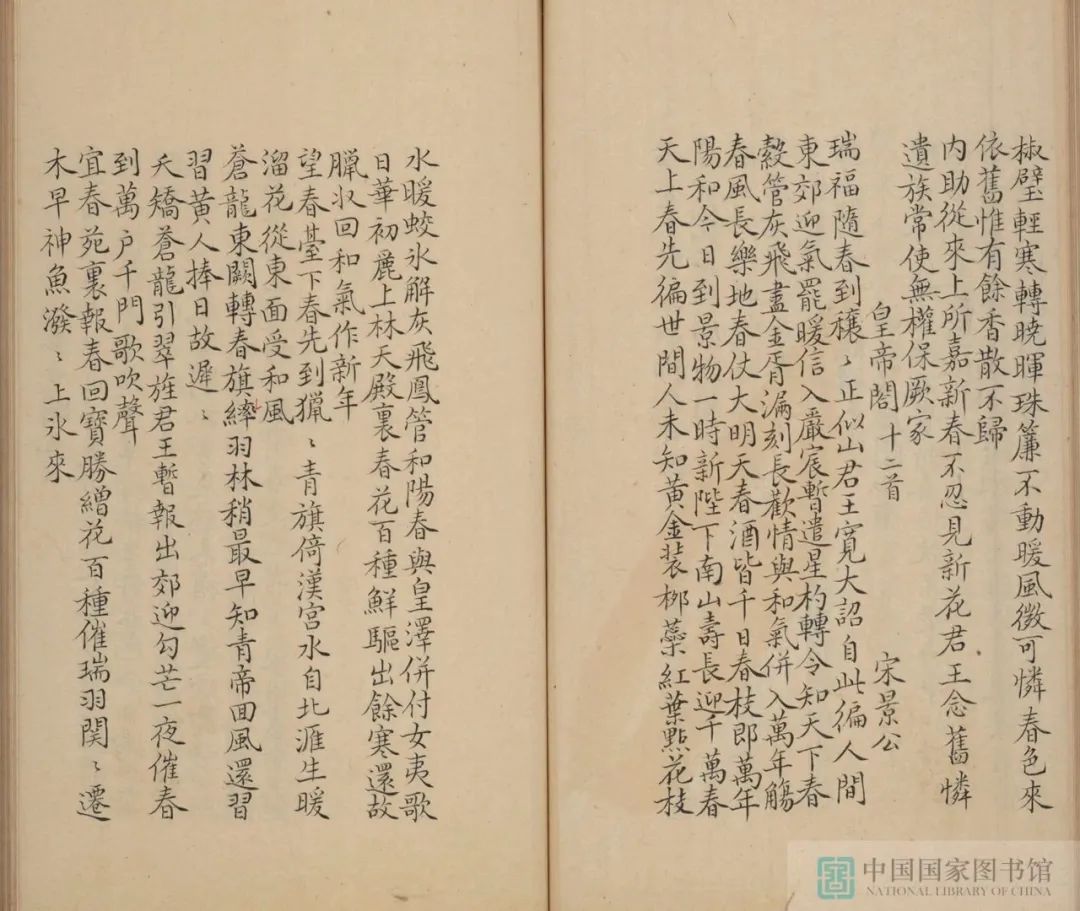 椒壁輕寒轉曉暉珠簾不動暖風微可憐春色來
依舊惟有餘香散不歸
内助從來上所嘉新春不忍見新花君王念舊憐
遺族常使無權保厥家
皇帝閣十二首 宋景公
瑞福隨春到穰〻正似山君王寬大詔自此徧人間
東郊迎氣罷暖信入嚴宸暫遣星杓轉令知天下春
縠管灰飛盡金胥漏刻長歡情與和氣併入萬年觴
春風長樂地春仗大明天春酒皆千日春枝即萬年
陽和今日到景物一時新陛下南山壽長迎千萬春
天上春先徧世間人未知黄金装桞蘂紅葉點花枝
水暖蛟氷解灰飛鳳管和陽春與皇澤併付女夷歌
日華初麗上林天殿裏春花百種鮮驅出餘寒還故
臘収回和氣作新年
望春臺下春先到獵〻青旗倚漢宮水自北涯生暖
溜花從東面受和風
蒼龍東闕轉春旗繂羽林稍最早知青帝回風還習
習黄人捧日故遲〻
夭矯蒼龍引翠旌君王暫報出郊迎勾芒一夜催春
到萬户千門歌吹聲
宜春苑裏報春回寶勝繒花百種催瑞羽関〻遷
木早神魚潑〻上氷來
中国国家图书馆
NATIONAL LIBRARY OF CHINA